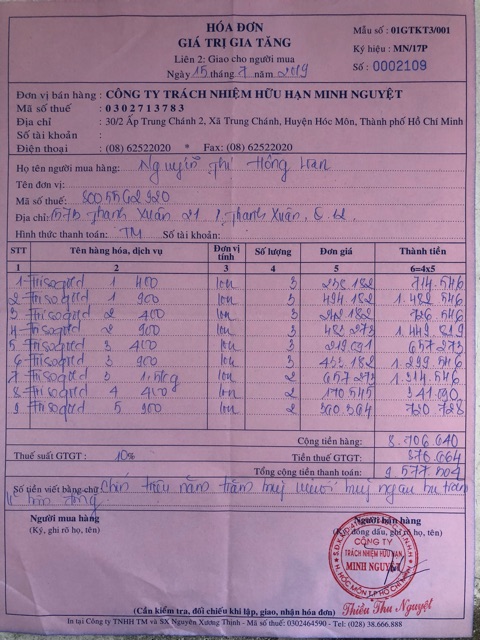 HÓA ĐƠN
GIÁ TRỊ GIA TĂNG
Liên 2: Giao cho người mua
Ngày 15 tháng 7 năm 2019
Mẫu số : 01GTKT3/001
Ký hiệu : MN/17P
Số : 0002109
Đơn vị bán hàng : CÔNG TY TRÁCH NHIỆM HỮU HẠN MINH NGUYỆT
Mã số thuế : 0302713783
Địa chỉ : 30/2 Ấp Trung Chánh 2, Xã Trung Chánh, Huyện Hóc Môn, Thành phố Hồ Chí Minh
Số tài khoản :
Điện thoại : (08) 62522020 * Fax: (08) 62522020
Họ tên người mua hàng: Nguyễn Thị Hồng
Tên đơn vị:
Mã số thuế:
Địa chỉ: Thạnh Xuân 21 P. Thạnh Xuân, Q.12
Hình thức thanh toán: TM Số tài khoản:
STT Tên hàng hóa, dịch vụ Đơn vị tính Số lượng Đơn giá Thành tiền
1 2 3 4 5 6=4x5
1 Frisogold 1 400 lon 3 238.182 714.546
2 Frisogold 1 900 lon 3 494.182 1.482.546
3 Frisogold 2 400 lon 3 242.182 726.546
4 Frisogold 2 900 lon 3 483.273 1.449.819
5 Frisogold 3 400 lon 3 219.091 657.273
6 Frisogold 3 900 lon 3 433.182 1.299.546
7 Frisogold 3 1,5kg lon 2 657.273 1.314.546
8 Frisogold 4 400 lon 2 170.545 341.090
9 Frisogold 5 900 lon 2 720.728
Cộng tiền hàng: 8.706.640
Thuế suất GTGT : 10% Tiền thuế GTGT:
Tổng cộng tiền thanh toán: 9.577.304
Số tiền viết bằng chữ: Chín triệu năm trăm bảy mươi bảy ngàn ba trăm
lẻ bốn đồng.
Người mua hàng
(Ký, ghi rõ họ, tên)
Người bán hàng
(Ký, đóng dấu, ghi rõ họ, tên)
CÔNG TY
TRÁCH NHIỆM HỮU HẠN
MINH NGUYỆT
H. HÓC MÔN T.P HỒ CHÍ MINH
Thiều Thu Nguyệt
(Cần kiểm tra, đối chiếu khi lập, giao, nhận hóa đơn)
In tại Công ty TNHH TM và SX Nguyên Xương Thịnh - Mã số thuế: 0302464590 - Tel: (028) 38.666.888